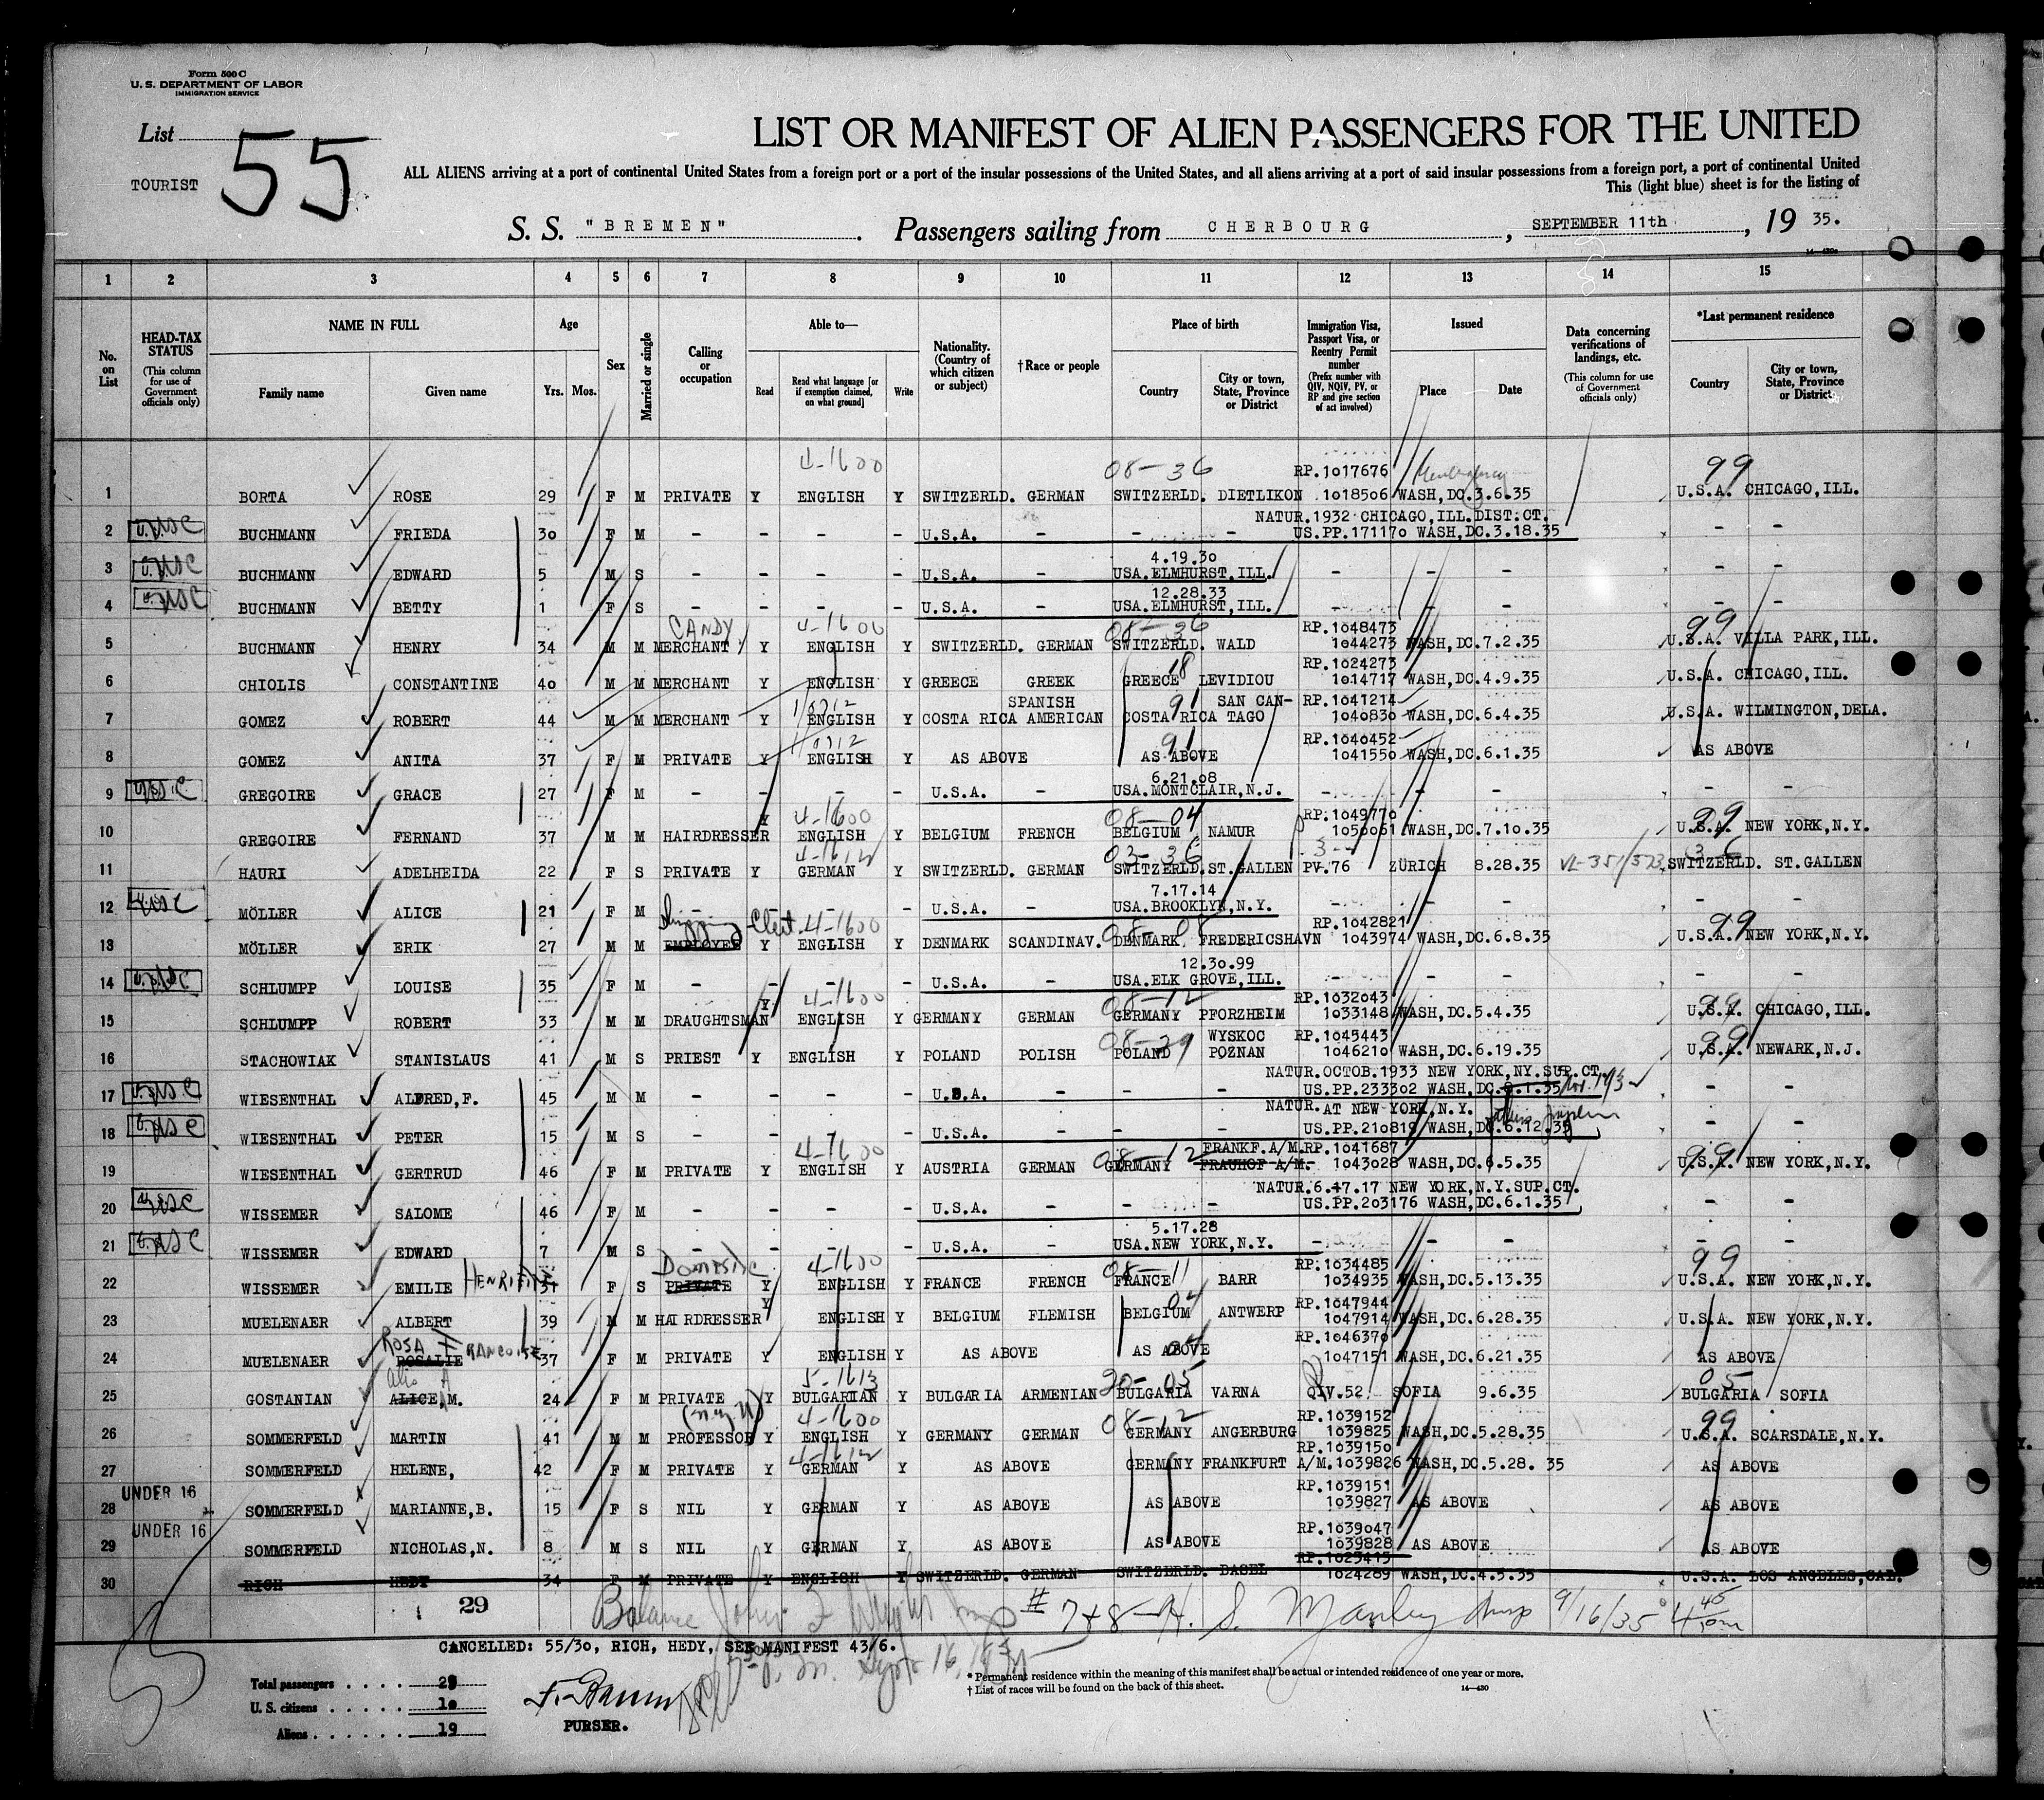 Form 500 C
U. S. DEPARTMENT OF LABOR
IMMIGRATION SERVICE
List 55
TOURIST
LIST OR MANIFEST OF ALIEN PASSENGERS FOR THE UNITED
ALL ALIENS arriving at a port of continental United States from a foreign port or a port of the insular possessions of the United States, and all aliens arriving at a port of said insular possessions from a foreign port, a port of continental United
This (light blue) sheet is for the listing of
S. S. "BREMEN". Passengers sailing from CHERBOURG, SEPTEMBER 11th, 19 35.
1 2 3 4 5 6 7 8 9 10 11 12 13 14 15
No. on List
HEAD-TAX STATUS (This column for use of Government officials only)
NAME IN FULL
Family name Given name
Age
Yrs. Mos.
Sex
Married or single
Calling or occupation
Able to—
Read Read what language [or if exemption claimed, on what ground] Write
Nationality. (Country of which citizen or subject)
† Race or people
Place of birth
Country City or town, State, Province or District
Immigration Visa, Passport Visa, or Reentry Permit number (Prefix number with QIV, NQIV, PV, or RP and give section of act involved)
Issued
Place Date
Data concerning verifications of landings, etc. (This column for use of Government officials only)
*Last permanent residence
Country City or town, State, Province or District
4-1600 08-36 RP.1017676 99
1 BORTA ROSE 29 F M PRIVATE Y ENGLISH Y SWITZERLD. GERMAN SWITZERLD. DIETLIKON 1018506 WASH,DC.3.6.35 U.S.A. CHICAGO,ILL.
NATUR.1932 CHICAGO,ILL.DIST.CT.
2 USC BUCHMANN FRIEDA 30 F M - - - - U.S.A. - - - US.PP.171170 WASH,DC.3.18.35 - -
4.19.30
3 USC BUCHMANN EDWARD 5 M S - - - - U.S.A. - USA.ELMHURST,ILL. - - - - -
12.28.33
4 USC BUCHMANN BETTY 1 F S - - - - U.S.A. - USA.ELMHURST,ILL. - - - - -
CANDY 4-1600 08-36 RP.1048473 99
5 BUCHMANN HENRY 34 M M MERCHANT Y ENGLISH Y SWITZERLD. GERMAN SWITZERLD. WALD 1044273 WASH,DC.7.2.35 U.S.A. VILLA PARK,ILL.
18 RP.1024273
6 CHIOLIS CONSTANTINE 40 M M MERCHANT Y ENGLISH Y GREECE GREEK GREECE LEVIDIOU 1014717 WASH,DC.4.9.35 U.S.A. CHICAGO,ILL.
SPANISH 91 SAN CAN- RP.1041214
7 GOMEZ ROBERT 44 M M MERCHANT Y ENGLISH Y COSTA RICA AMERICAN COSTA RICA TAGO 1040830 WASH,DC.6.4.35 U.S.A. WILMINGTON,DELA.
91 RP.1040452
8 GOMEZ ANITA 37 F M PRIVATE Y ENGLISH Y AS ABOVE AS ABOVE 1041550 WASH,DC.6.1.35 AS ABOVE
6.21.08
9 USC GREGOIRE GRACE 27 F M - - - - U.S.A. - USA.MONTCLAIR,N.J. - - - - -
Y 4-1600 08-04 RP.1049770 99
10 GREGOIRE FERNAND 37 M M HAIRDRESSER ENGLISH Y BELGIUM FRENCH BELGIUM NAMUR 1050061 WASH,DC.7.10.35 U.S.A. NEW YORK,N.Y.
4-1612 03-36 3- 36
11 HAURI ADELHEIDA 22 F S PRIVATE Y GERMAN Y SWITZERLD. GERMAN SWITZERLD.ST.GALLEN PV.76 ZÜRICH 8.28.35 VL-351/373 SWITZERLD. ST.GALLEN
7.17.14
12 USC MÖLLER ALICE 21 F M - - - - U.S.A. - USA.BROOKLYN,N.Y. - - - - -
Shipping Clert. 4-1600 08-08 RP.1042821 99
13 MÖLLER ERIK 27 M M EMPLOYEE Y ENGLISH Y DENMARK SCANDINAV. DENMARK FREDERICSHAVN 1043974 WASH,DC.6.8.35 U.S.A. NEW YORK,N.Y.
12.30.99
14 USC SCHLUMPP LOUISE 35 F M - - - - U.S.A. - USA.ELK GROVE,ILL. - - - - -
Y 4-1600 08-12 RP.1032043 99
15 SCHLUMPP ROBERT 33 M M DRAUGHTSMAN ENGLISH Y GERMANY GERMAN GERMANY PFORZHEIM 1033148 WASH,DC.5.4.35 U.S.A. CHICAGO,ILL.
08-29 WYSKOC RP.1045443 99
16 STACHOWIAK STANISLAUS 41 M S PRIEST Y ENGLISH Y POLAND POLISH POLAND POZNAN 1046210 WASH,DC.6.19.35 U.S.A. NEWARK,N.J.
NATUR.OCTOB.1933 NEW YORK,NY.SUP.CT.
17 USC WIESENTHAL ALFRED,F. 45 M M - - - - U.S.A. - - - US.PP.233302 WASH,DC. - -
NATUR. AT NEW YORK,N.Y.
18 USC WIESENTHAL PETER 15 M S - - - - U.S.A. - - - US.PP.210819 WASH,DC.6.12.35 - -
4-1600 08-12 FRANKF.A/M.RP.1041687 99
19 WIESENTHAL GERTRUD 46 F M PRIVATE Y ENGLISH Y AUSTRIA GERMAN GERMANY FRAUHOF A/M. 1043028 WASH,DC.6.5.35 U.S.A. NEW YORK,N.Y.
NATUR.6.17.17 NEW YORK,N.Y.SUP.CT.
20 USC WISSEMER SALOME 46 F M - - - - U.S.A. - - - US.PP.203176 WASH,DC.6.1.35 - -
5.17.28
21 USC WISSEMER EDWARD 7 M S - - - - U.S.A. - USA.NEW YORK,N.Y. - - - - -
DOMESTIC 4-1600 08-11 RP.1034485 99
22 WISSEMER EMILIE F S PRIVATE Y ENGLISH Y FRANCE FRENCH FRANCE BARR 1034935 WASH,DC.5.13.35 U.S.A. NEW YORK,N.Y.
Y 04 RP.1047944
23 MUELENAER ALBERT 39 M M HAIRDRESSER ENGLISH Y BELGIUM FLEMISH BELGIUM ANTWERP 1047914 WASH,DC.6.28.35 U.S.A. NEW YORK,N.Y.
ROSA FRANCOISE 04 RP.1046370
24 MUELENAER ROSALIE 37 F M PRIVATE Y ENGLISH Y AS ABOVE AS ABOVE 1047151 WASH,DC.6.21.35 AS ABOVE
5-1613 20-05 05
25 GOSTANIAN ALICE,M. 24 F M PRIVATE Y BULGARIAN Y BULGARIA ARMENIAN BULGARIA VARNA QIV.52 SOFIA 9.6.35 BULGARIA SOFIA
4-1600 08-12 RP.1039152 99
26 SOMMERFELD MARTIN 41 M M PROFESSOR Y ENGLISH Y GERMANY GERMAN GERMANY ANGERBURG 1039825 WASH,DC.5.28.35 U.S.A. SCARSDALE,N.Y.
4-1612 RP.1039150
27 SOMMERFELD HELENE, 42 F M PRIVATE Y GERMAN Y AS ABOVE GERMANY FRANKFURT A/M.1039826 WASH,DC.5.28.35 AS ABOVE
UNDER 16 RP.1039151
28 SOMMERFELD MARIANNE,B. 15 F S NIL Y GERMAN Y AS ABOVE AS ABOVE 1039827 AS ABOVE AS ABOVE
UNDER 16 RP.1039047
29 SOMMERFELD NICHOLAS,N. 8 M S NIL Y GERMAN Y AS ABOVE AS ABOVE 1039828 AS ABOVE AS ABOVE
RP.1023415
30 RICH HEDY 34 F M PRIVATE Y ENGLISH Y SWITZERLD. GERMAN SWITZERLD. BASEL 1024289 WASH,DC.4.5.35 U.S.A. LOS ANGELES,CAL.
29 Balance # 7+8-H. S. Manley 9/16/35 4 45 pm
CANCELLED: 55/30, RICH, HEDY, SEE MANIFEST 43/6.
Sept 16, 1935
Total passengers . . . . . 29
U. S. citizens . . . . . 10
Aliens . . . . . . 19
PURSER.
* Permanent residence within the meaning of this manifest shall be actual or intended residence of one year or more.
† List of races will be found on the back of this sheet.
14—430